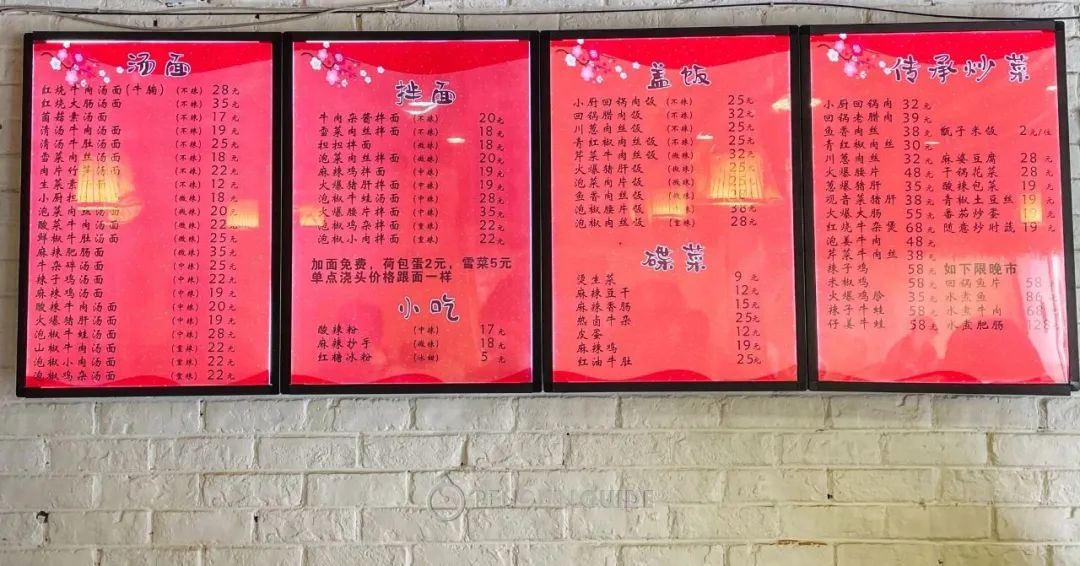 汤面
红烧牛肉汤面(牛腩) (不辣) 28元
红烧大肠汤面 (不辣) 35元
菌菇素汤面 (不辣) 17元
清汤牛肉汤面 (不辣) 19元
清汤牛肚汤面 (不辣) 25元
雪菜肉丝汤面 (不辣) 18元
肉片竹 汤面 (不辣) 22元
生菜素 面 (不辣) 12元
小厨担 面 (微辣) 18元
泡菜肉丝汤面 (微辣) 20元
酸菜牛肉汤面 (微辣) 22元
鲜椒牛肚汤面 (微辣) 25元
麻辣肥肠面 (中辣) 35元
牛杂碎汤面 (中辣) 25元
辣子鸡汤面 (中辣) 22元
麻辣鸡汤面 (中辣) 19元
酸辣牛肉汤面 (中辣) 20元
火爆猪肝汤面 (中辣) 19元
泡椒牛蛙汤面 (中辣) 28元
山椒牛肉汤面 (重辣) 22元
泡椒小肉汤面 (重辣) 22元
泡椒鸡杂汤面 (重辣) 22元
拌面
牛肉杂酱拌面 (不辣) 20元
雪菜肉丝拌面 (不辣) 18元
担担拌面 (微辣) 18元
泡菜肉丝拌面 (微辣) 20元
麻辣鸡拌面 (中辣) 19元
火爆猪肝拌面 (中辣) 19元
泡椒牛蛙拌面 (中辣) 28元
火爆腰片拌面 (中辣) 35元
泡椒鸡杂拌面 (重辣) 22元
泡椒小肉拌面 (重辣) 22元
加面免费，荷包蛋2元，雪菜5元
单点浇头价格跟面一样
小吃
酸辣粉 (中辣) 17元
麻辣抄手 (微辣) 18元
红糖冰粉 (冰甜) 5元
盖饭
小厨回锅肉饭 (不辣) 25元
回锅腊肉饭 (不辣) 32元
川葱肉丝饭 (不辣) 25元
青红椒肉丝饭 (微辣) 25元
芹菜牛肉丝饭 (微辣) 32元
火爆猪肝饭 (不辣) 25元
泡菜肉片饭 (微辣) 25元
鱼香肉丝饭 (微辣)
泡椒腰片饭 (重辣) 38元
泡椒肉丝饭 (重辣) 28元
碟菜
烫生菜 9元
麻辣豆干 12元
麻辣香肠 15元
热卤牛杂 25元
皮蛋 12元
麻辣鸡 19元
红油牛肚 25元
传承炒菜
小厨回锅肉 32元
回锅老腊肉 39元
鱼香肉丝 38元
青红椒肉丝 30元
川葱肉丝 32元
火爆腰片 48元
葱爆猪肝 35元
观音菜猪肝 38元
火爆大肠 55元
红烧牛杂煲 68元
泡姜牛肉 48元
芹菜牛肉丝 38元
辣子鸡 58元
米椒鸡 58元
火爆鸡胗 35元
辣子牛蛙 58元
仔姜牛蛙 58元
甑子米饭 2元/位
麻婆豆腐 28元
干锅花菜 28元
酸辣包菜 19元
青椒土豆丝 19元
番茄炒蛋 19元
随意炒时蔬 19元
如下限晚市
回锅鱼片 58元
水煮鱼 86元
水煮牛肉 68元
水煮肥肠 128元